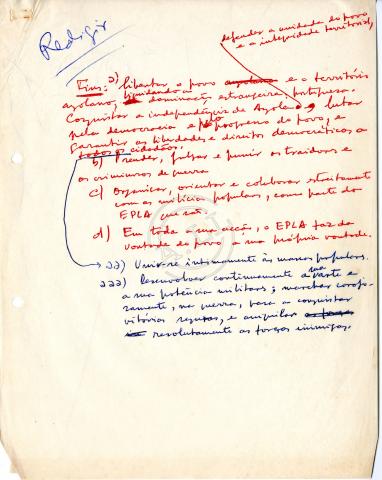 Redigir
defender a unidade do povo
e a integridade territorial,
Fins: a) libertar o povo angolano e o território
angolano, liquidando a dominação estrangeira portuguesa.
Conquistar a independência de Angola, lutar
pela democracia e pelo progresso do povo, e
garantir as liberdades e direitos democráticos a
todos os cidadãos.
b) Prender, julgar e punir os traidores e
os criminosos de guerra.
c) Organizar, orientar e colaborar estreitamente
com as milícias populares, como parte do
EPLA que são.
d) Em toda a sua acção, o EPLA faz da
vontade do povo a sua própria vontade.
aa) Unir-se intimamente às massas populares.
aaa) Desenvolver continuamente a sua arte e
a sua potência militar; marchar corajo-
samente, na guerra, para a conquistar
vitórias, e aniquilar as forças
resolutamente as forças inimigas.